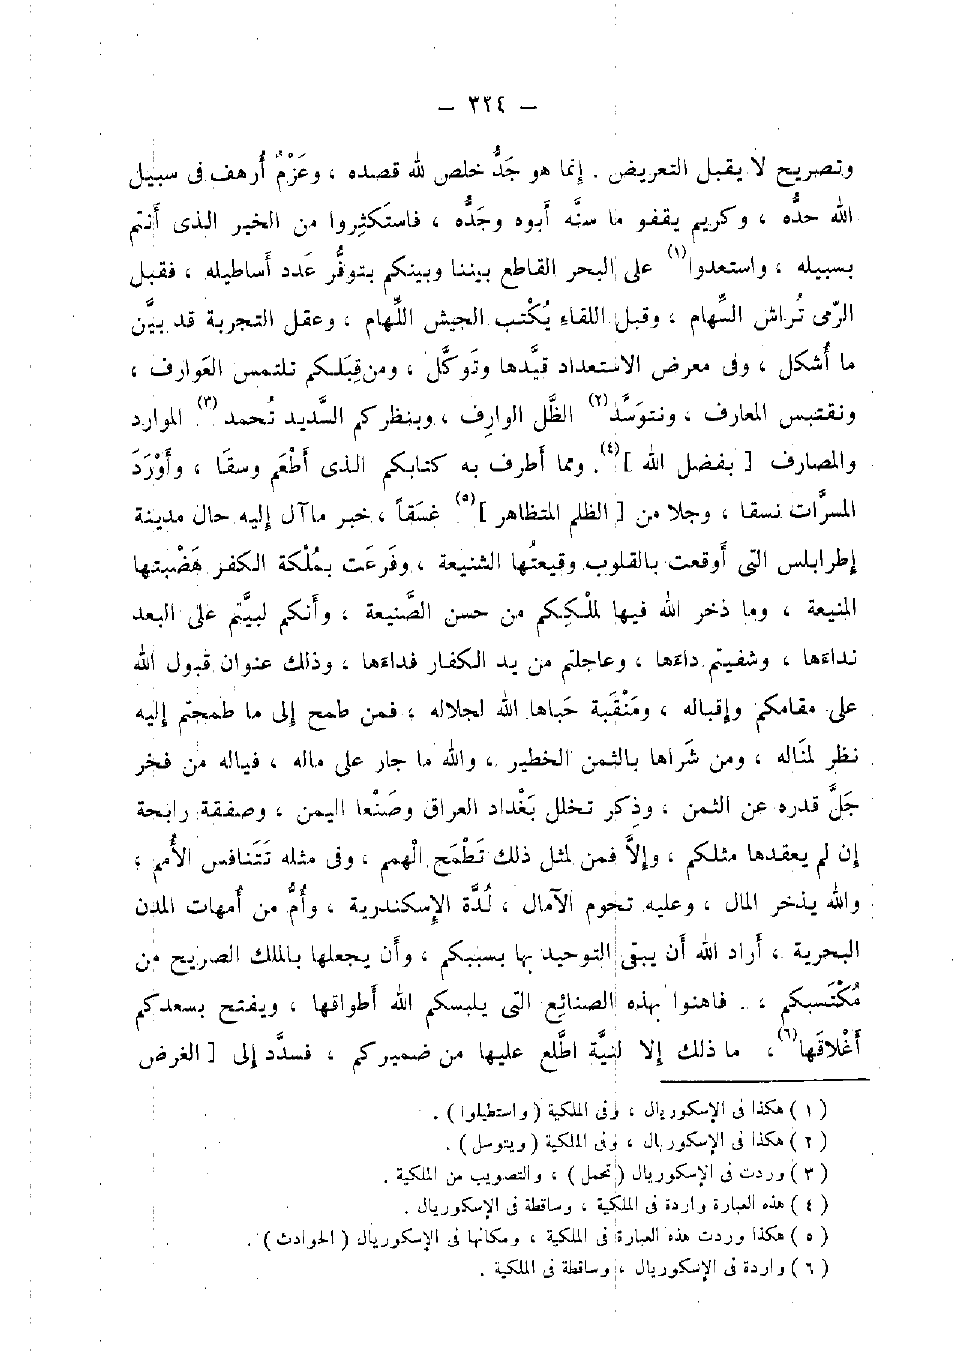 — ٣٢٤ —
وتصريح لا يقبل التعريض . إنما هو جَدٌّ خلص لله قصده ، وعَزْمٌ أُرهف فى سبيل
الله حدُّه ، وكريم يقفو ما سنَّه أبوه وجَدُّه ، فاستَكثِروا من الخير الذى أنتم
بسبيله ، واستعدوا(١) على البحر القاطع بيننا وبينكم بتوفُّر عَدد أساطيله ، فقبل
الرّمى تُراش السِّهام ، وقبل اللقاء يُكْتب الجيش اللُّهام ، وعقل التجربة قد بيَّن
ما أُشكل ، وفى معرض الاستعداد قيَّدها وتَوكَّل ، ومن قِبَلكم تلتمس العَوارف ،
ونقتبس المعارف ، ونتوَسَّد(٢) الظَّل الوارِف ، وبنظركم السَّديد تُحمد(٣) الموارد
والمصارف [ بفضل الله ](٤). ومما أطرف به كتابكم الذى أطْعَم وسقَا ، وأوْرَدَ
المسرَّات نسقا ، وجلا من [ الظلم المتظاهر ](٥) غسَقاً ، خبر ما آل إليه حال مدينة
إطرابلس التى أوقعت بالقلوب وقيعتُها الشنيعة ، وفَرعَت بمُلْكة الكفر هَضْبتها
المنيعة ، وما ذخر الله فيها لمُلْكِكم من حسن الصَّنيعة ، وأنكم لبيَّتم على البعد
نداءها ، وشفيتم داءها ، وعاجلتم من يد الكفار فداءها ، وذلك عنوان قبول الله
على مقامكم وإقباله ، ومَنْقَبة حَباها الله لجلاله ، فمن طمح إلى ما طمحتم إليه
نظر لمنَاله ، ومن شَراها بالثمن الخطير ، والله ما جار على ماله ، فياله من فخر
جَلَّ قدره عن الثمن ، وذِكر تخلل بَغْداد العراق وصَنْعا اليمن ، وصفقة رابحة
إن لم يعقدها مثلكم ، وإلاَّ فمن لمثل ذلك تَطْمَح الْهمم ، وفى مثله تَتَنافس الأُمم ،
والله يذخر المال ، وعليه تحوم الآمال ، لُدَّة الإسكندرية ، وأُمٌّ من أمهات المدن
البحرية ، أراد الله أن يبقى التوحيد بها بسببكم ، وأن يجعلها بالملك الصريح من
مُكْتَسبكم ، فاهنوا بهذه الصنائع التى يلبسكم الله أطواقها ، ويفتح بسعدكم
أغْلاقَها(٦)، ما ذلك إلا لنيَّة اطَّلع عليها من ضميركم ، فسدَّد إلى [ الغرض
( ١ ) هكذا فى الإسكوريال ، وفى الملكية ( واستطيلوا ) .
( ٢ ) هكذا فى الإسكوريال ، وفى الملكية ( ويتوسل ) .
( ٣ ) وردت فى الإسكوريال ( تحمل ) ، والتصويب من الملكية .
( ٤ ) هذه العبارة واردة فى الملكية ، وساقطة فى الإسكوريال .
( ٥ ) هكذا وردت هذه العبارة فى الملكية ، ومكانها فى الإسكوريال ( الحوادث ) .
( ٦ ) واردة فى الإسكوريال ، وساقطة فى الملكية .